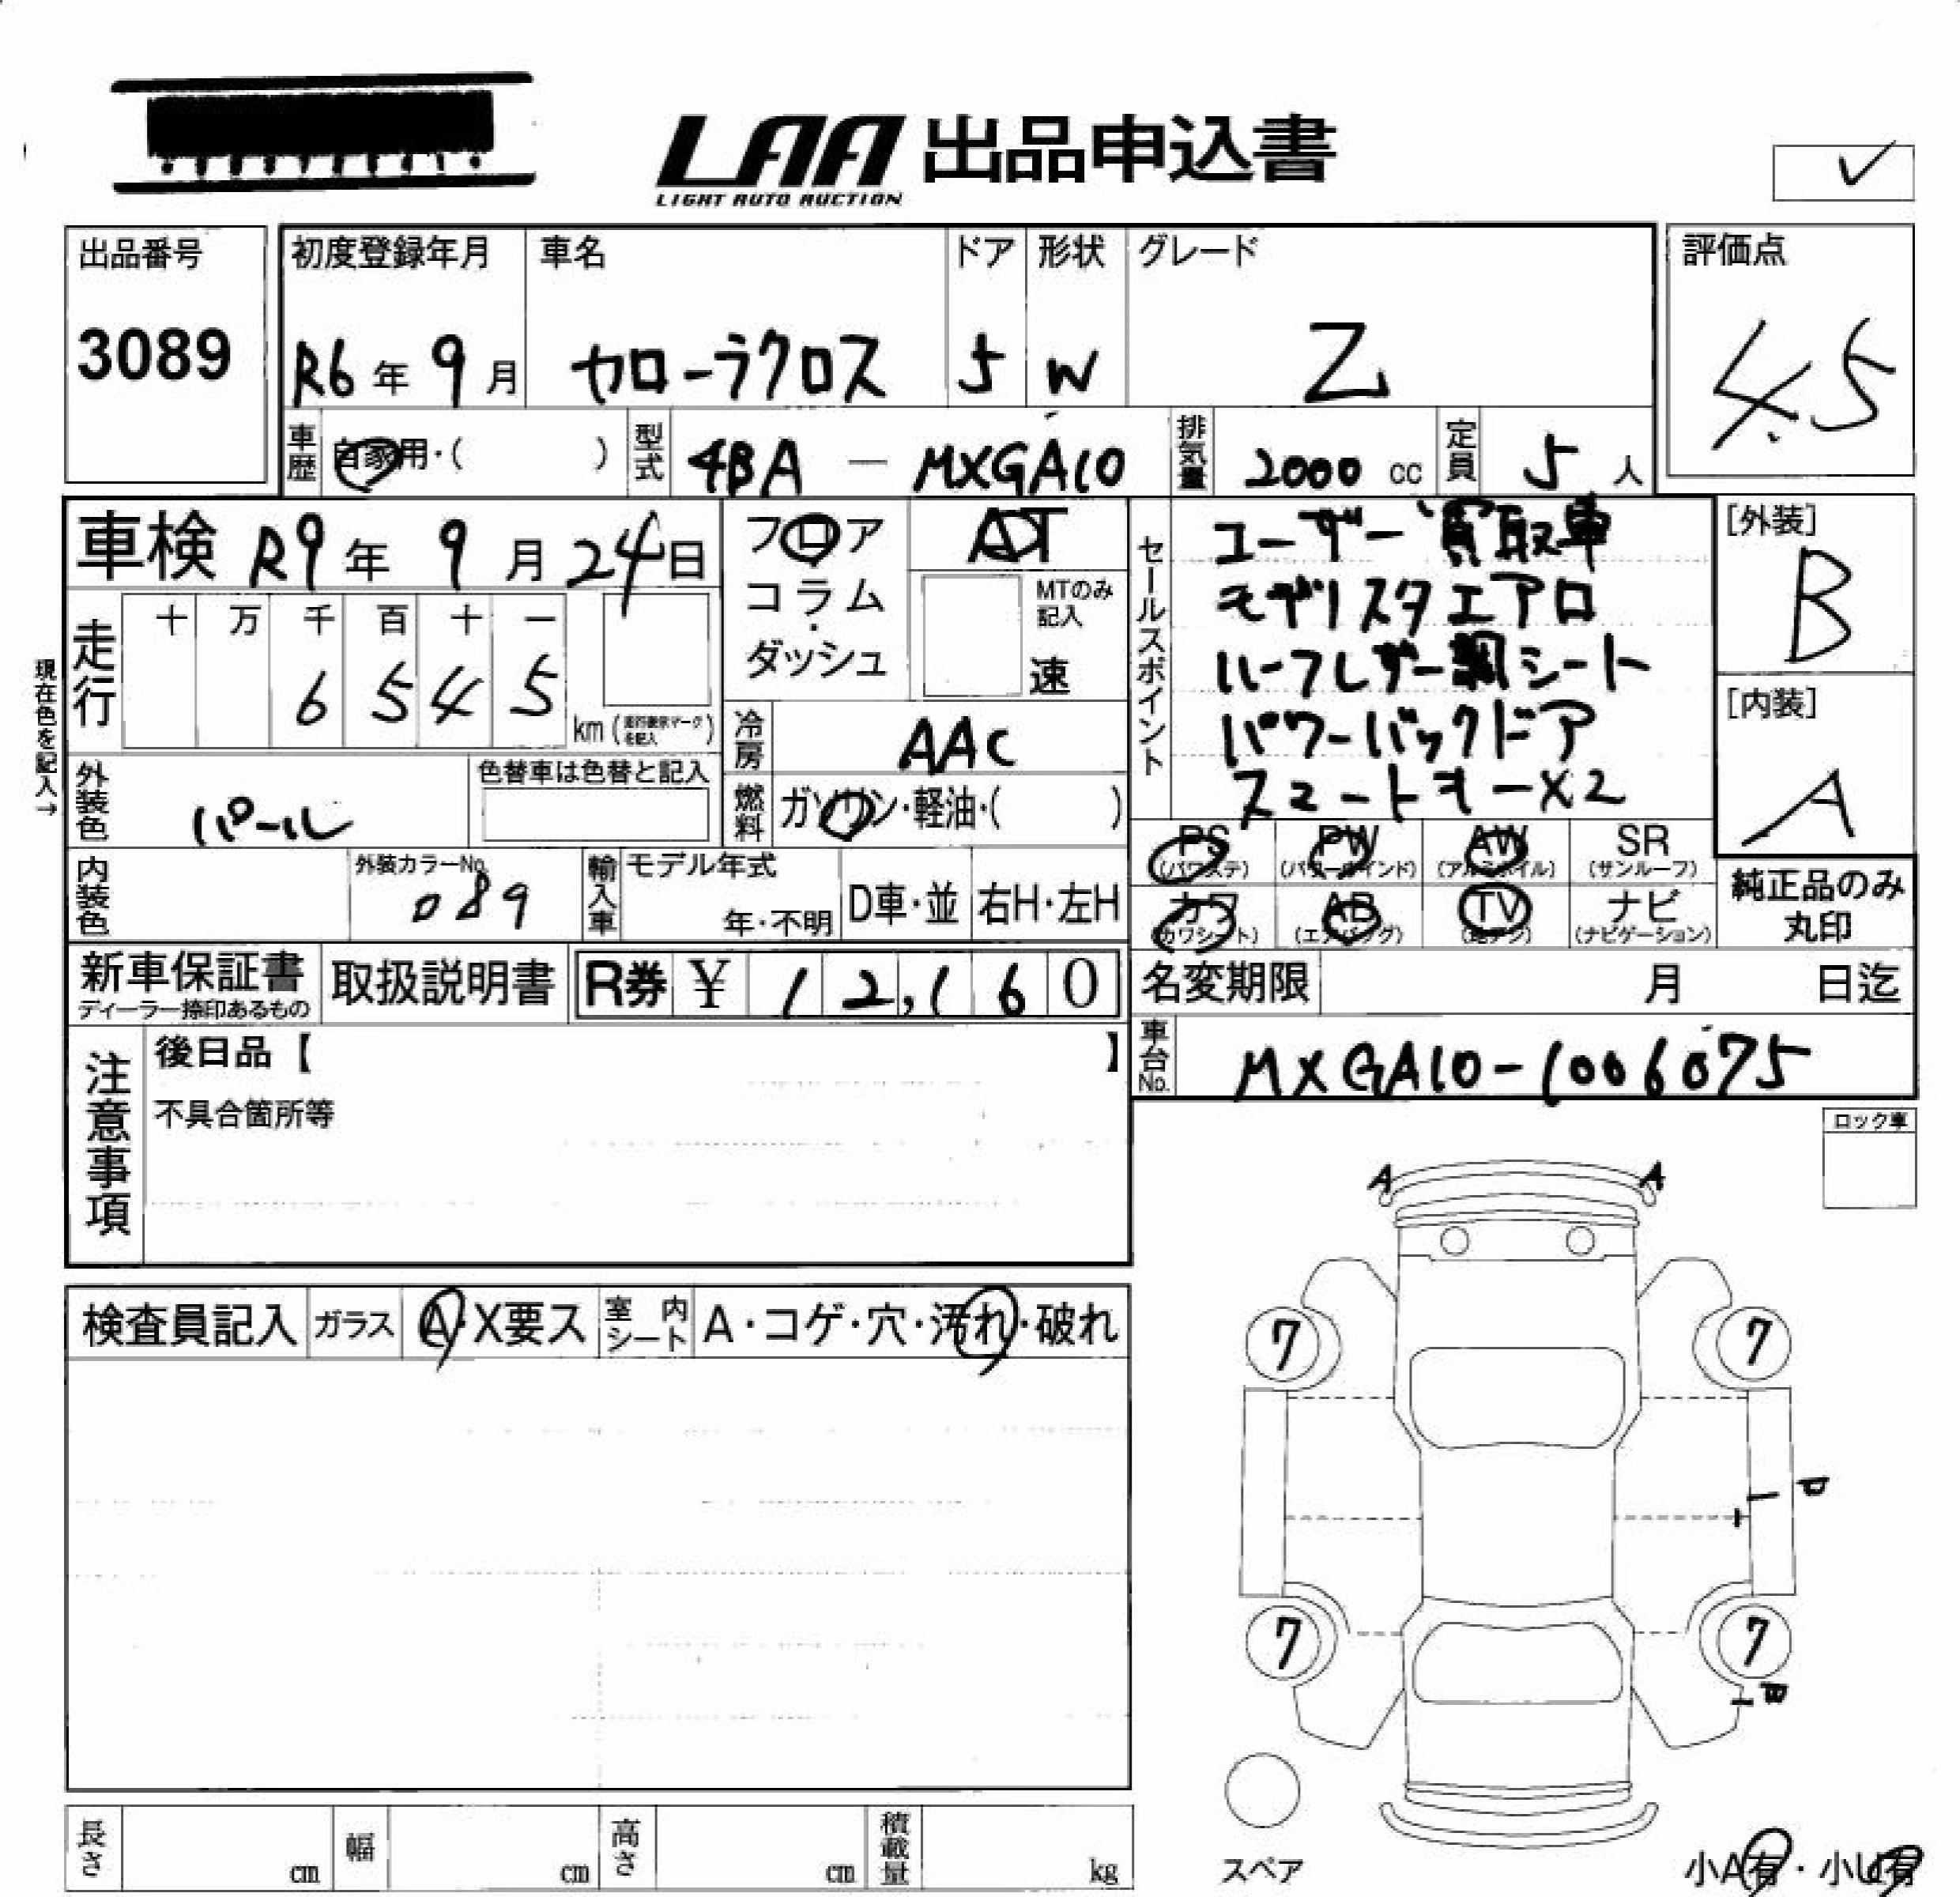 LAA 出品申込書
LIGHT AUTO AUCTION
出品番号
3089
初度登録年月
R6年 9月
車名
カローラクロス
ドア
5
形状
W
グレード
Z
評価点
4.5
車歴
自家用・( )
型式
4BA - MXGA10
排気量
2000 cc
定員
5 人
車検 R9年 9月 24日
現在色を記入→
走行
十 万 千 百 十 一
6 5 4 5
km(走行表示マークを記入)
フロア
コラム
・
ダッシュ
AT
MTのみ
記入
速
冷房
AAC
燃料
ガソリン・軽油・( )
外装色
パール
色替車は色替と記入
内装色
外装カラーNo.
089
輸入車
モデル年式
年・不明
D車・並
右H・左H
セールスポイント
ユーザー買取車
モデリスタエアロ
ハーフレザー調シート
パワーバックドア
スマートキーX2
[外装]
B
[内装]
A
PS
(パワステ)
PW
(パワーウインド)
AW
(アルミホイル)
SR
(サンルーフ)
カワ
(カワシート)
AB
(エアバッグ)
TV
(地デジ)
ナビ
(ナビゲーション)
純正品のみ
丸印
新車保証書
ディーラー捺印あるもの
取扱説明書
R券 ¥ 12,160
名変期限
月 日迄
車台No.
MXGA10-1006075
注意事項
後日品【 】
不具合箇所等
ロック車
検査員記入
ガラス
A・X要ス
室内シート
A・コゲ・穴・汚れ・破れ
A A
7 7
P
7 7
スペア
長さ
cm
幅
cm
高さ
cm
積載量
kg
小A有・小U有